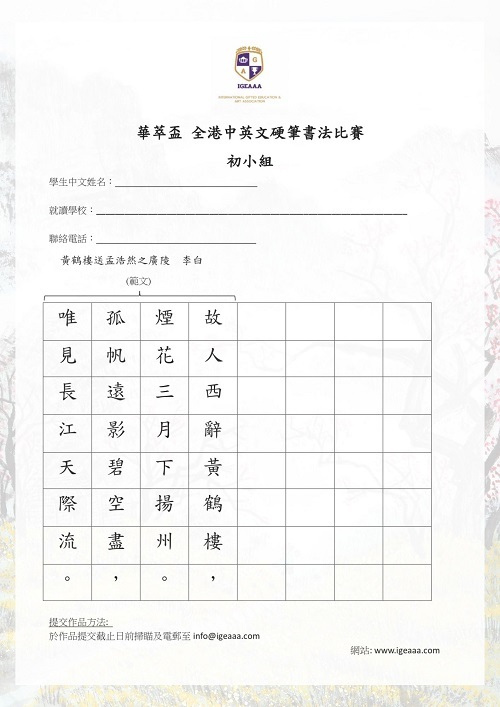 IGEAAA
INTERNATIONAL GIFTED EDUCATION &
ART ASSOCIATION
華萃盃 全港中英文硬筆書法比賽
初小組
學生中文姓名：
就讀學校：
聯絡電話：
黃鶴樓送孟浩然之廣陵 李白
(範文)
故人西辭黃鶴樓，
煙花三月下揚州。
孤帆遠影碧空盡，
唯見長江天際流。
提交作品方法:
於作品提交截止日前掃瞄及電郵至 info@igeaaa.com
網站: www.igeaaa.com